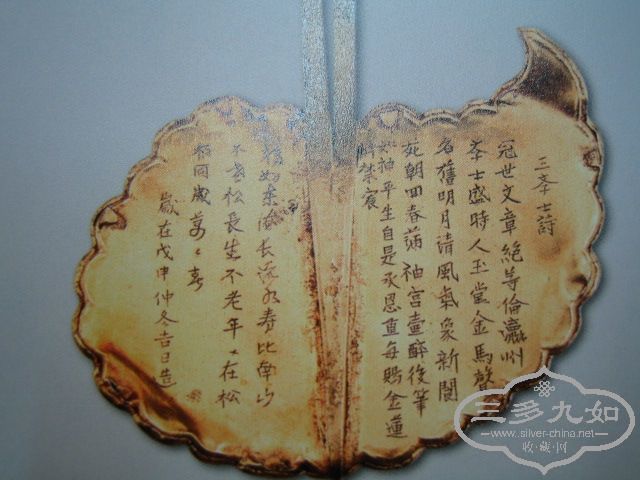 三本士詩
冠世文章絶等倫瀛州
本士盛時人玉堂金馬聲
名舊明月清風氣象新閬
苑朝回春滿袖宮壺醉後筆
神平生自是承恩重每賜金蓮
禁宸
如東海長流水壽比南山
不老松長生不老年々在松
柏同歲萬々春
歲在戊申仲冬吉日造
三多九如
www.silver-china.net
收·藏·网